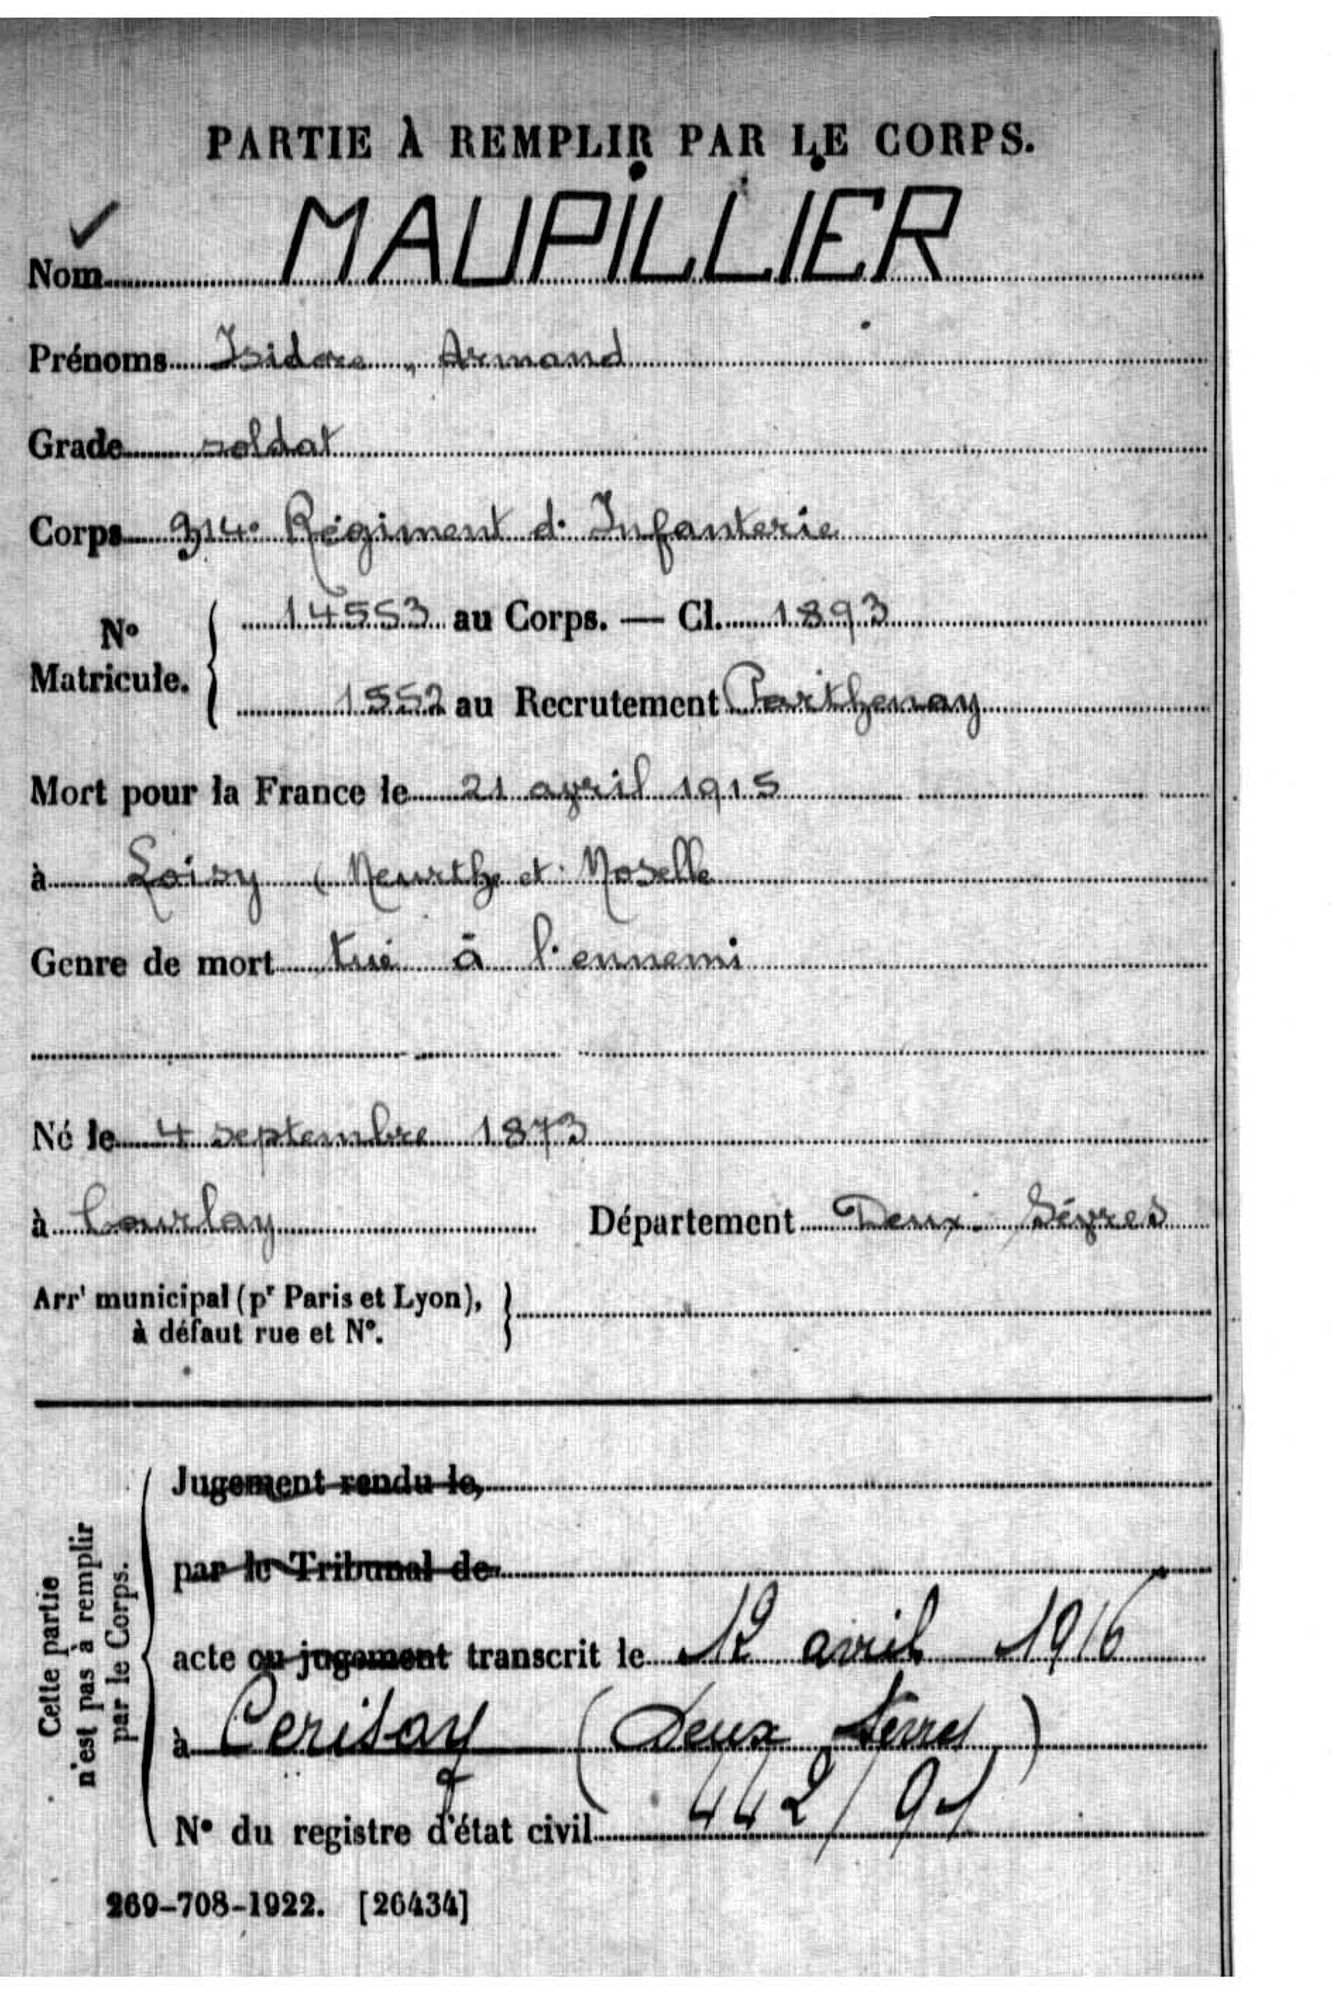 PARTIE À REMPLIR PAR LE CORPS.
Nom MAUPILLIER
Prénoms Isidore, Armand
Grade soldat
Corps 314e Régiment d'Infanterie
N° Matricule. { 14553 au Corps. — Cl. 1893
1552 au Recrutement Parthenay
Mort pour la France le 21 avril 1915
à Loisy (Meurthe et Moselle
Genre de mort tué à l'ennemi
Né le 4 septembre 1873
à Courlay Département Deux-Sèvres
Arrt municipal (pr Paris et Lyon), }
à défaut rue et N°.
Cette partie
n'est pas à remplir
par le Corps.
Jugement rendu le,
par le Tribunal de
acte ou jugement transcrit le avril 1916
à Cerisay (Deux Sèvres)
N° du registre d'état civil 442/91
269-708-1922. [26434]